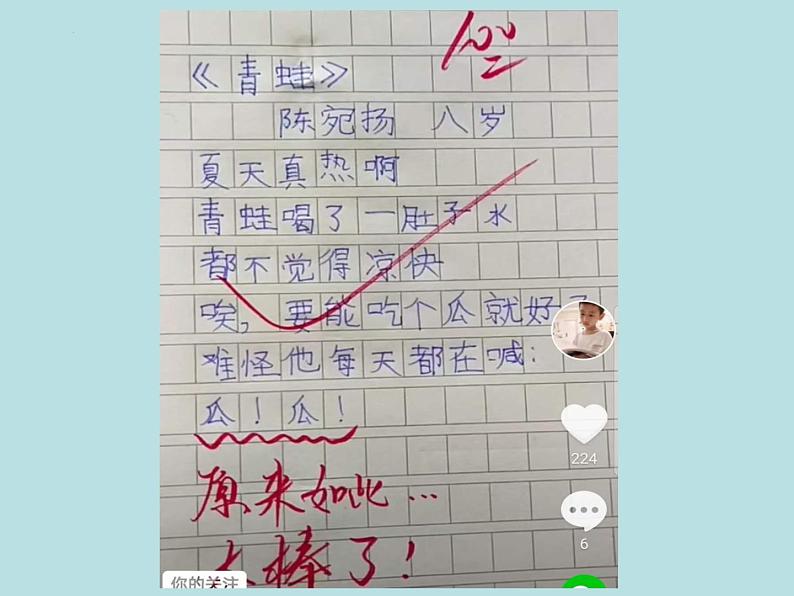 100
《青蛙》
陈宛扬 八岁
夏天真热啊
青蛙喝了一肚子水
都不觉得凉快
唉,要能吃个瓜就好了
难怪他每天都在喊:
瓜!瓜!
原来如此…
太棒了!
224
6
你的关注